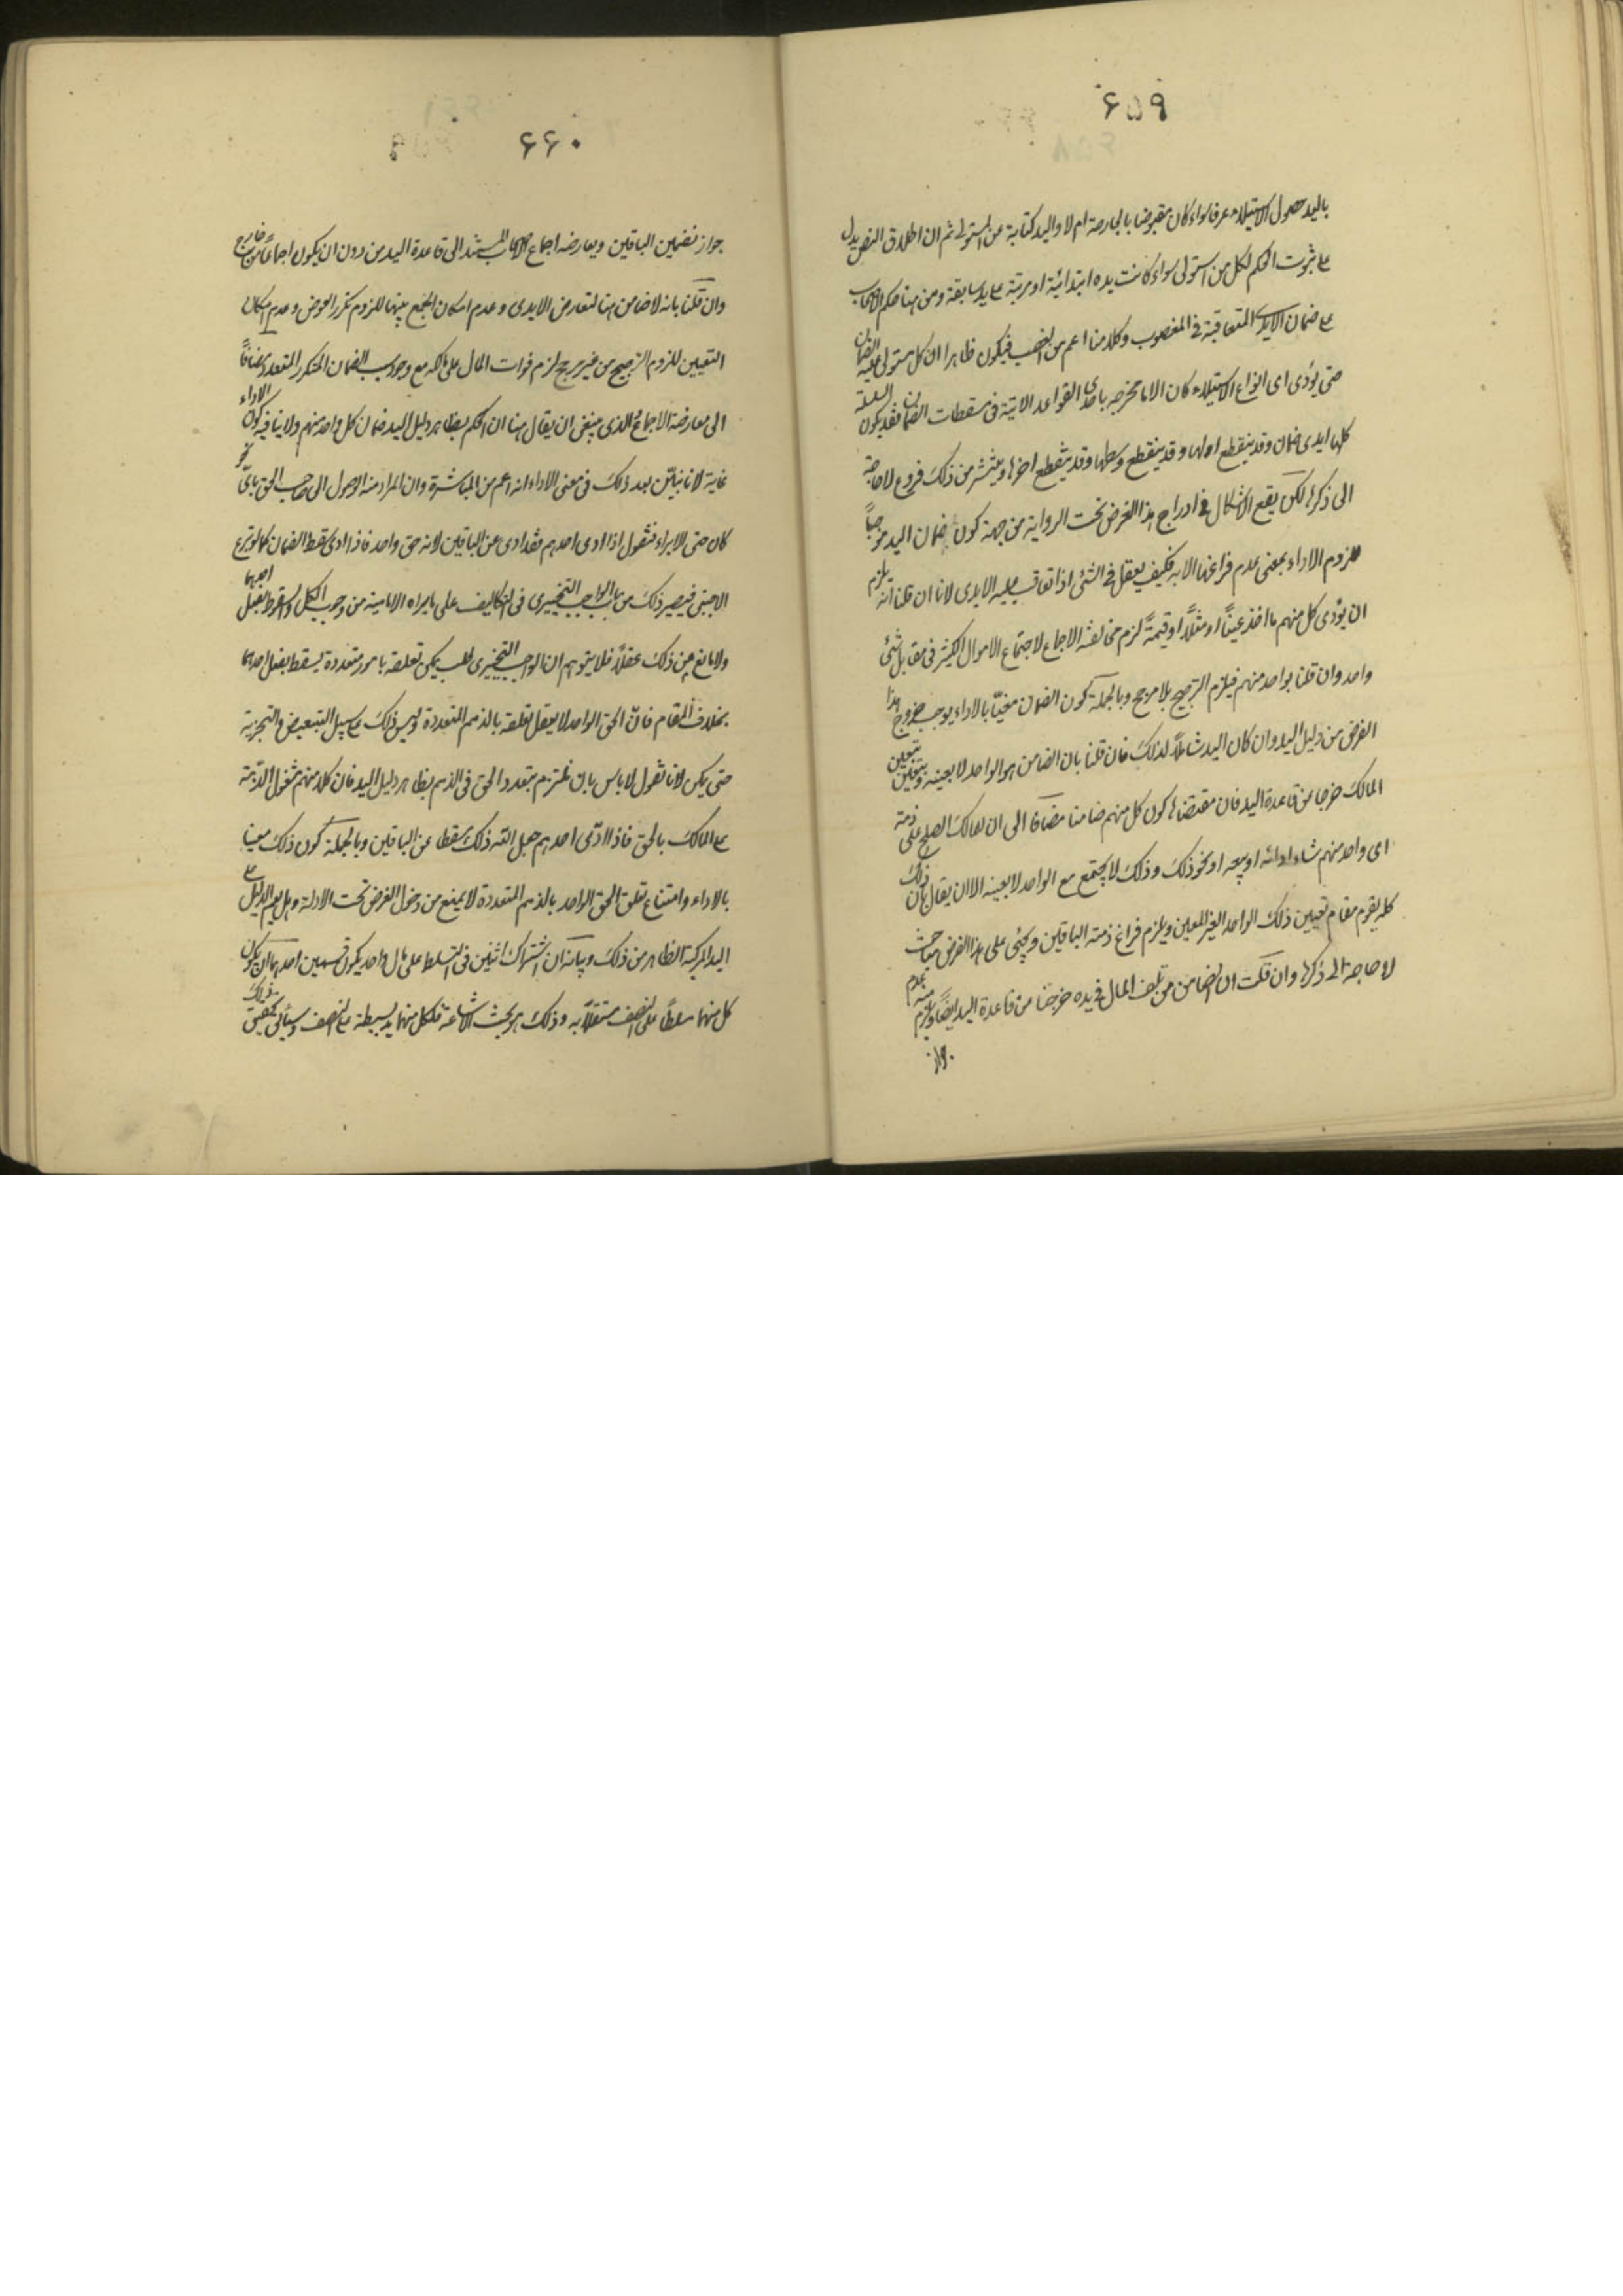 ۶۵۹
باليد حصول الاستيلاء عرفا سواء كان مقبوضا بالجارحة ام لا واليد كناية عن المستولى ثم ان اطلاق النص يدل
على ثبوت الحكم لكل من استولى سواء كانت يده ابتدائية او مرتبة على يد سابقة ومن هنا حكم الاصحاب
على ضمان الايدى المتعاقبة فى المغصوب وكلامنا اعم من الغصب فيكون ظاهرا ان كل مستولى عليه الضمان
حتى يؤدى اى انواع الاستيلاء كان الا ما نخرجه باحدى القواعد الاتية فى مسقطات الضمان فقد يكون السلسلة
كلها ايدى ضمان وقد ينقطع اولها وقد ينقطع وسطها وقد ينقطع اخرها وينشر من ذلك فروع لا حاجة
الى ذكرها لكن يقع الاشكال فى ادراج هذا الفرض تحت الرواية من جهة كون ضمان اليد موجباً
للزوم الاداء بمعنى عدم فراغها الا به فكيف يعقل فى الشئ اذا تعاقب عليه الايدى لانا ان قلنا انه يلزم
ان يؤدى كل منهم ما اخذ عيناً او مثلاً او قيمةً لزم مخالفة الاجماع لاجتماع الاموال الكثيرة فى مقابل شئ
واحد وان قلنا بواحد منهم فيلزم الترجيح بلا مرجح وبالجملة كون الضمان مغيّا بالاداء يوجب خروج هذا
الفرض من دليل اليد وان كان اليد شاملاً لذلك فان قلنا بان الضامن هو الواحد لا بعينه ويتعين بتعيين
المالك خرجنا عن قاعدة اليد فان مقتضاه كون كل منهم ضامنا مضافا الى ان للمالك الصلح على ذمة
اى واحد منهم شاء او ابرائه او بيعه او نحو ذلك وذلك لا يجتمع مع الواحد لا بعينه الا ان يقال بان ذلك
كله يقوم مقام تعيين ذلك الواحد الغير المعين ويلزم فراغ ذمة الباقين ويجئى على هذا الفرض مباحث
لا حاجة الى ذكرها وان قلت ان الضامن من تلف المال فى يده خرجنا من قاعدة اليد ايضاً ويلزم منه عدم
جواز
۶۶۰
جواز تضمين الباقين ويعارضه اجماع الاصحاب المستند الى قاعدة اليد من دون ان يكون اجماعاً من خارج
وان قلنا بانه لا ضامن هنا لتعارض الايدى وعدم امكان الجمع بينها للزوم تكرر العوض وعدم امكان
التعيين للزوم الترجيح من غير مرجح لزم فوات المال على مالكه مع وجود سبب الضمان المتكرر المتعدد مضافاً
الى معارضة الاجماع والذى ينبغى ان يقال هنا ان الحكم بظاهر دليل اليد ضمان كل واحد منهم ولا ينافيه كون الاداء
غاية لانا نبيّن بعد ذلك فى معنى الاداء انه اعم من المباشرة وان المراد منه الوصول الى صاحب الحق باىّ نحو
كان حتى الابراء فنقول اذا ادى احدهم فقد ادى عن الباقين لانه حق واحد فاذا ادى سقط الضمان كما لو تبرع
الاجنبى فيصير ذلك من باب الواجب التخييرى فى التكاليف على ما يراه الامامية من وجوب الكل والسقوط بفعل احدها
ولا مانع من ذلك عقلاً فلا يتوهم ان الواجب التخييرى طلب يمكن تعلقه بامور متعددة يسقط بفعل احدها
بخلاف المقام فانّ الحق الواحد لا يعقل تعلقه بالذمم المتعددة وليس ذلك على سبيل التبعيض والتجزية
حتى يمكن لانا نقول لا باس بان نلتزم بتعدد الحق فى الذمم بظاهر دليل اليد فان كلا منهم مشغول الذمة
على المالك بالحق فاذا ادّى احدهم جعل الله ذلك مسقطا عن الباقين وبالجملة كون ذلك مغيا
بالاداء وامتناع تعلق الحق الواحد بالذمم المتعددة لا يمنع من دخول الفرض تحت الادلة وهل يعم الدليل على
اليد المركبة الظاهر من ذلك وبيانه ان اشتراك اثنين فى التسلط على مال واحد يكون قسمين احدهما ان يكون
كل منهما مسلطاً على النصف مستقلاً به وذلك هو بحث الاشاعة فلكل منهما يد بسيطة على النصف وسيأتى تحقيق ذلك